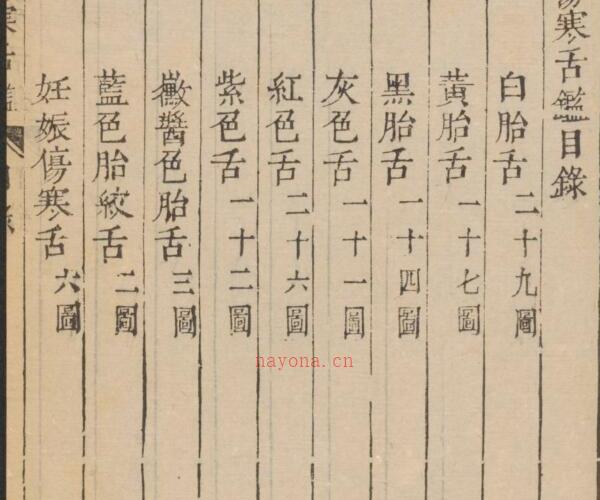 傷寒舌鑑目錄
白胎舌二十九圖
黃胎舌一十七圖
黑胎舌一十四圖
灰色舌一十一圖
紅色舌二十六圖
紫色舌一十二圖
黴醬色胎舌三圖
藍色胎紋舌二圖
妊娠傷寒舌六圖
nayona.cn